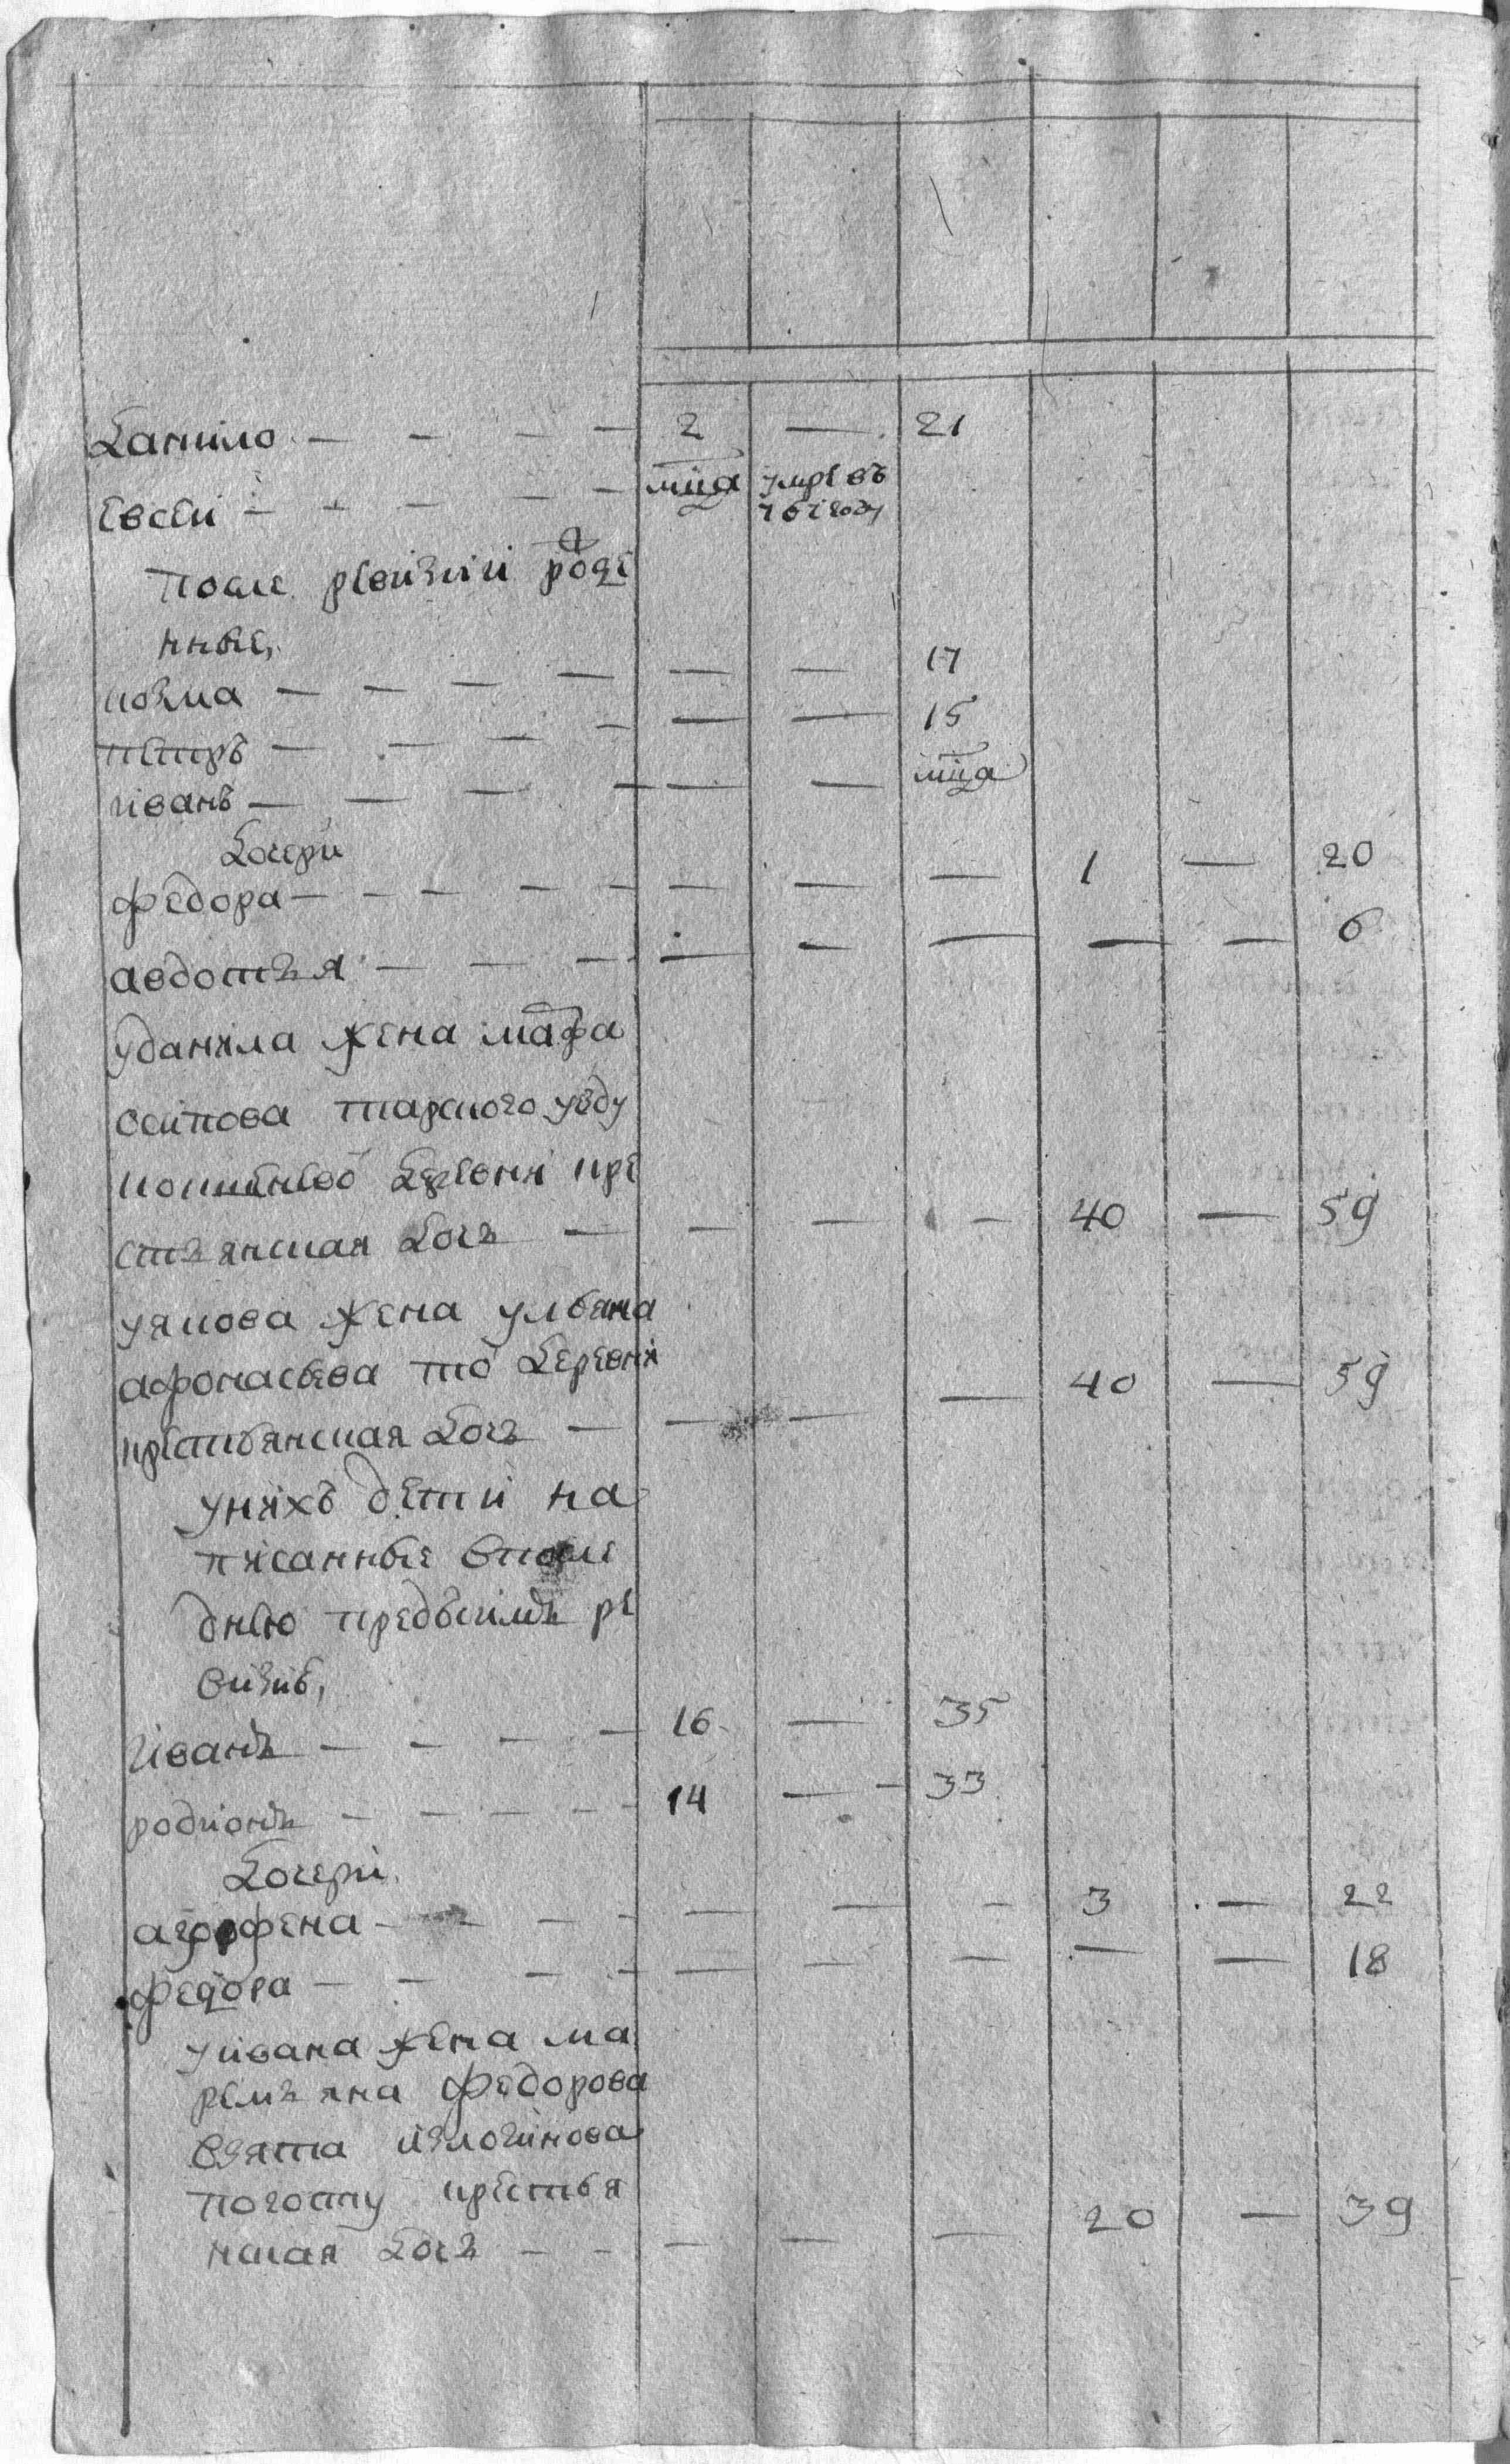 данило — — — — 2 — 21
евсеи — — — — — мца умре въ
767 году
после ревизии роде
нные,
козма — — — — — — 17
петръ — — — — — — 15
иванъ — — — — — — мца
дочери
федора — — — — — — — — 1 — 20
авдотья — — — — — — — — 6
уданила жена мафа
осипова тарского уезду
деревни кре
стьянская дочь — — — — 40 — 59
уякова жена ульяна
афонасьева то деревни
крестьянская дочь — — — — 40 — 59
унихъ дети на
писанные впосле
днею предъ симъ ре
визию,
иванъ — — — — 16 — 35
родионъ — — — — — 14 — 33
дочери
агрофена — — — — — — — 3 — 22
федора — — — — — — — — — 18
уивана жена ма
ремьяна федорова
взята изложинова
погосту крестья
нская дочь — — — — — 20 — 39